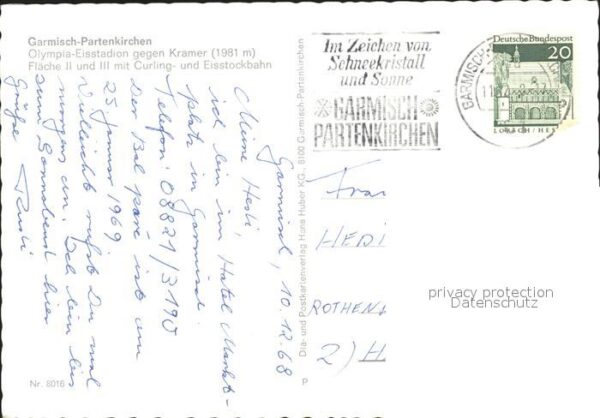 Garmisch-Partenkirchen
Olympia-Eisstadion gegen Kramer (1981 m)
Fläche II und III mit Curling- und Eisstockbahn
Garmisch, 10.12.68
Meine Hedi,
ich bin im Hotel Markt-
platz in Garmisch.
Telefon: 08821/3190
Der Bal paré ist am
25. Januar 1969.
Vielleicht rufst Du mal
morgens an. Ich bin bis
zum Sonnabend hier
Grüße Rudi
Nr. 8016
Dia- und Postkartenverlag Huber KG., 8100 Garmisch-Partenkirchen
P
Im Zeichen von
Schneekristall
und Sonne
GARMISCH
PARTENKIRCHEN
GARMISCH-
Deutsche Bundespost
20
LORSCH/HESSEN
Frau
HEDI
ROTHEN
2) H
privacy protection
Datenschutz